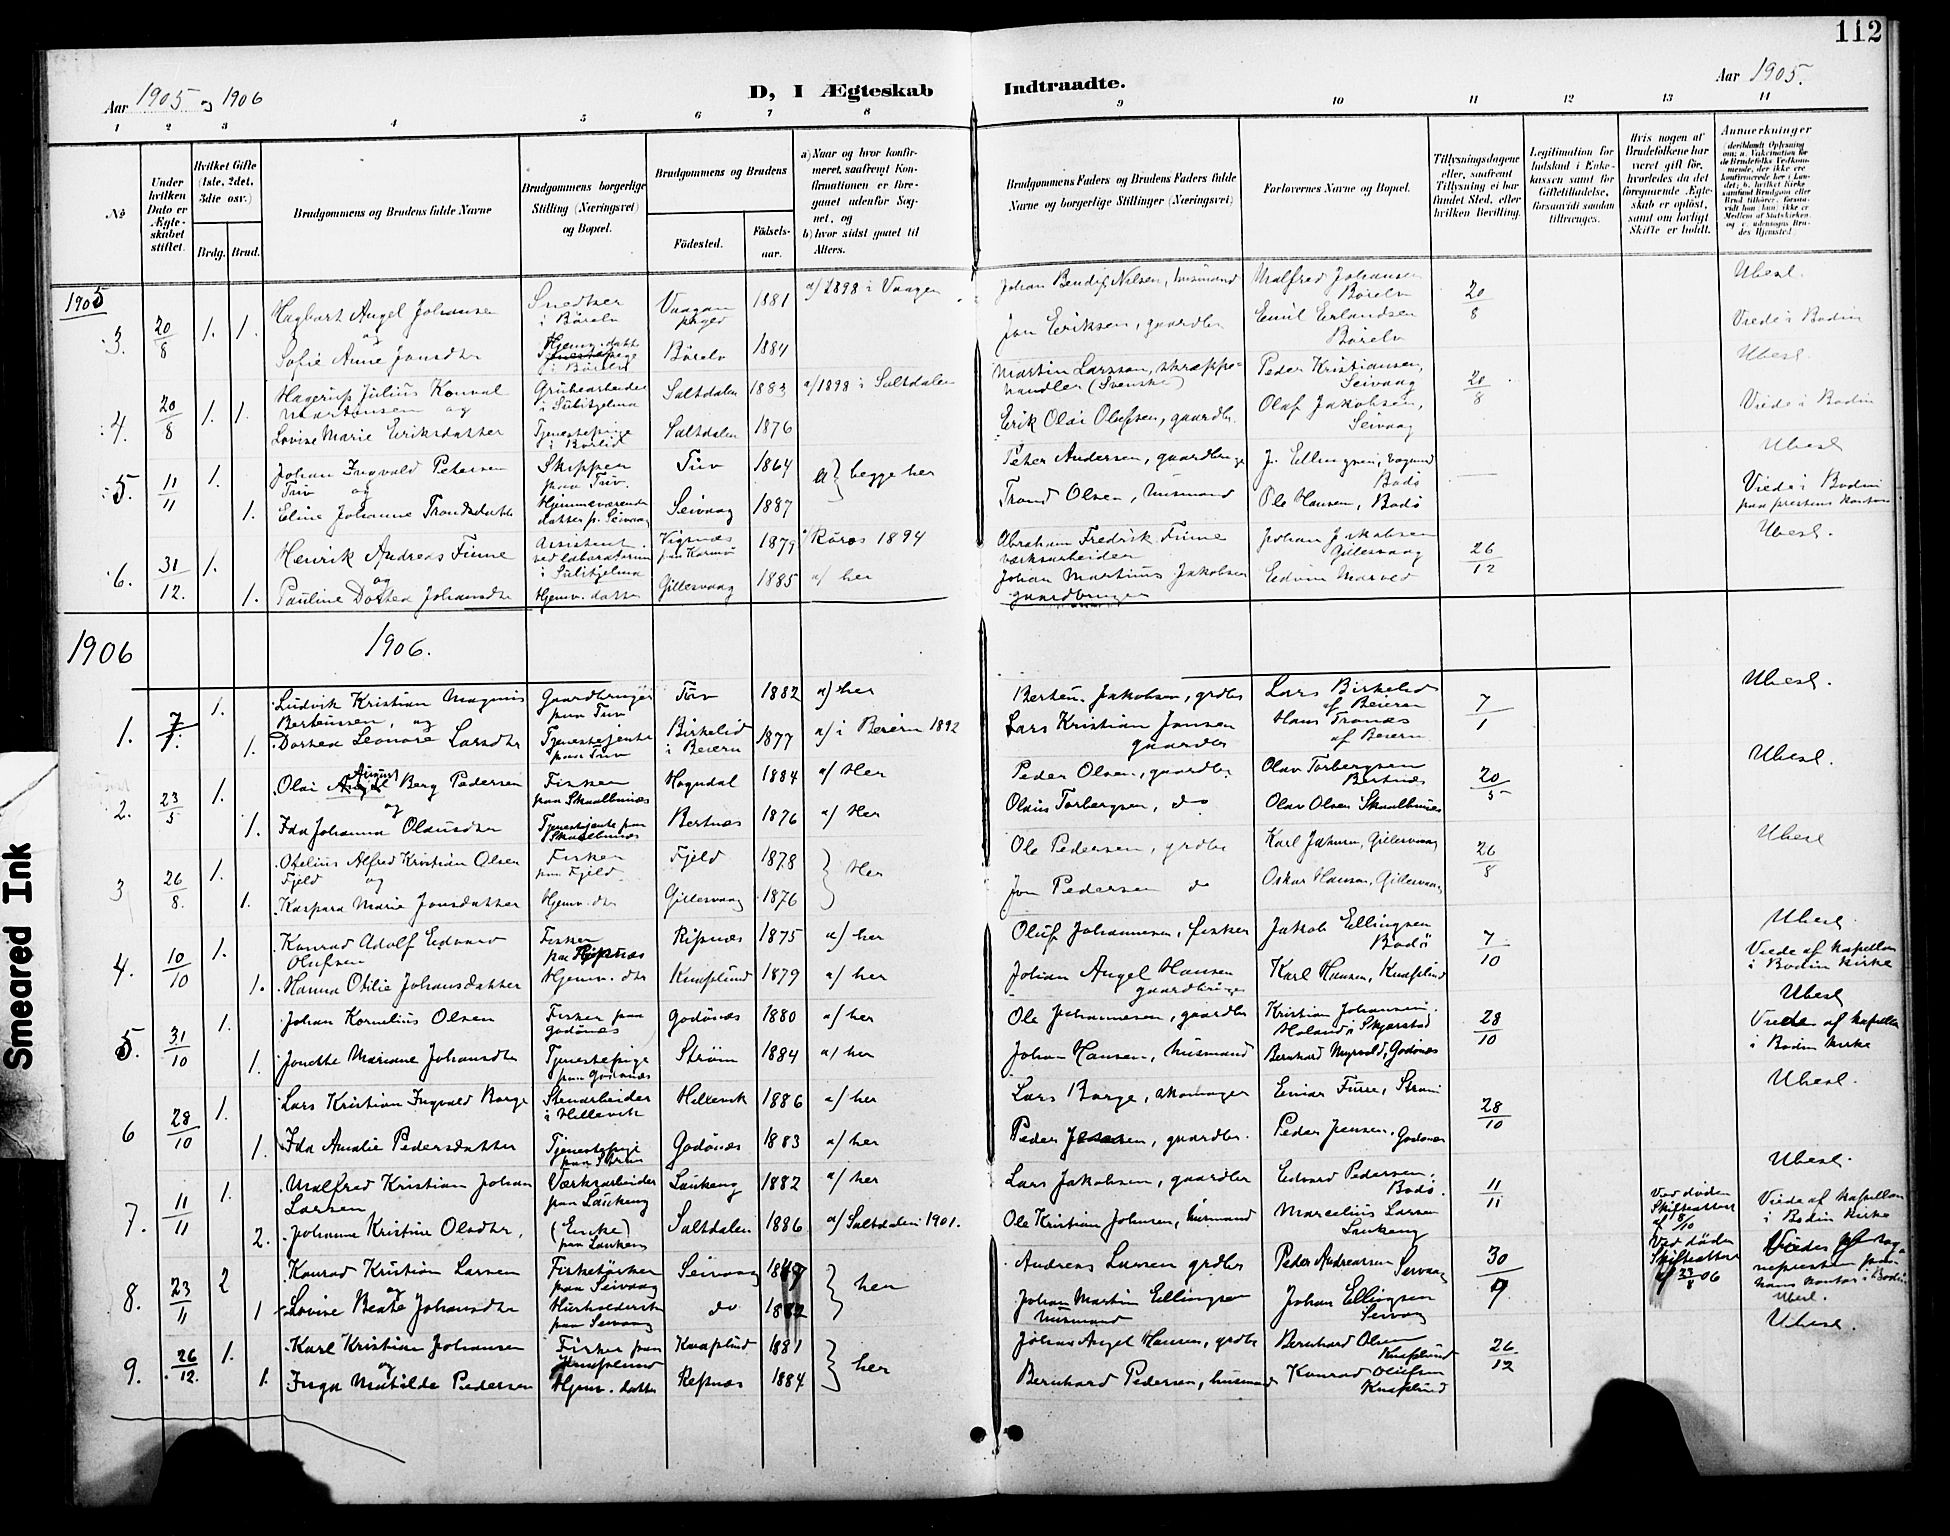 112
Aar 1905 og 1906
D, I Ægteskab Indtraadte.
Aar 1905.
1 2 3 4 5 6 7 8 9 10 11 12 13 14
No
Under hvilken Dato er Ægteskabet stiftet.
Hvilket Gifte (1ste, 2det, 3die osv.)
Brdg. Brud.
Brudgommens og Brudens fulde Navne
Brudgommens borgerlige Stilling (Næringsvei) og Bopæl.
Brudgommens og Brudens
Födested. Födselsaar.
a) Naar og hvor konfirmeret, saafremt Konfirmationen er foregaaet udenfor Sognet, og
b) hvor sidst gaaet til Alters.
Brudgommens Faders og Brudens Faders fulde Navne og borgerlige Stillinger (Næringsvei)
Forlovernes Navne og Bopæl.
Tillysningsdagene eller, saafremt Tillysning ei har fundet Sted, efter hvilken Bevilling.
Legitimation for Indskud i Enkekassen samt for Giftetilladelse, forsaavidt saadan tiltrænges.
Hvis nogen af Brudefolkene har været gift för, hvorledes da det foregaaende Ægteskab er oplöst, samt om lovligt Skifte er holdt.
Anmerkninger
1905
3. 20/8 1. 1. Hagbart Angel Johansen
og
Sofie Anne Jonsdtr
Snedker i Börelv
Hjemv. datter
i Börelv
Vaagan prgjed 1881 a/ 1898 i Vaagen
Börelv 1884
Johan Bendix Nilsen, husmand
Jon Eriksen, gaardbr
Malfred Johansen Börelv
Emil Erlandsen Börelv
20/8
Ubesl.
Viede i Bodin
4. 20/8 1. 1. Hagerup Julius Konval Martinsen og
Lovise Marie Eriksdatter
Grubearbeider i Sulitjelma
Tjenestepige i Börlid
Saltdalen 1883 a/ 1898 i Saltdalen
Saltdalen 1876
Martin Larsson, skræppehandler (Svenske)
Erik Olai Olufsen, gaardbr.
Peder Kristiansen, Seivaag
Olaf Jakobsen, Seivaag
20/8
Ubesl.
Viede i Bodin
5. 11/11 1. 1. Johan Ingvald Petersen Tuv og
Eline Johanne Trondsdatter
Skipper paa Tuv.
Hjemmeværende datter p. Seivaag
Tuv 1864
Seivaag 1887
a} begge her
Peter Andersen, gaardbruger
Trond Olsen, husmand
J. Ellingsen, Bodö
Ole Hansen, Bodö
—
Ubesl
Viede i Bodin paa prestens kontor
6. 31/12. 1. 1. Henrik Andreas Finne
og
Pauline Dorthea Johansdtr
Assistent ved laboratorium i Sulitjelma
Hjemv. datter
Vigsnæs paa Karmö 1879 a/ Röros 1894
Gillesvaag 1885 a/ her
Abraham Fredrik Finne værksarbeider
Johan Martinus Jakobsen gaardbruger
Johan Jakobsen Gillesvaag
Edvin Marved
26/12
Ubesl.
1906 1906.
1. 7/1. 1. 1. Ludvik Kristian Magnus Berteussen, og
Dorthea Leonore Larsdtr
Gaardbruger paa Tuv
Tjenestejente paa Tuv
Tuv 1882 a/ her
Birkelid i Beiern 1877 a/ i Beiern 1892
Berteu. Jakobsen, grdbr
Lars Kristian Jonsen gaardbr
Lars Birkelid af Beieren
Hans Tranæs af Beiern
7/1
Ubesl.
2. 23/5 1. 1. Olai August Berg Pedersen
og
Ida Johanna Olausdtr
Fisker paa Skaalbunæs
Tjenestejente paa Skaalbunæs
Hogndal 1884 a/ Her
Bertnæs 1876 a/ Her
Peder Olsen, gaardbr
Olaus Torbergsen, do
Olav Torbergsen Bertnæs
Olav Olsen i Skaalbunæs
20/5
Ubesl.
3 26/8. 1. 1. Otelius Alfred Kristian Olsen Fjeld og
Kaspara Marie Jonsdatter
Fisker paa Fjeld.
Hjemv. dtr
Fjeld 1878
Gillesvaag 1876
} Her
Ole Pedersen, grdbr
Jon Pedersen do
Karl Johnsen, Gillesvaag
Oskar Hansen, Gillesvaag
26/8
Ubesl
4. 10/10 1. 1. Konrad Adolf Edvard Olufsen
Hanna Otilie Johansdatter
Fisker paa Ripnæs
Hjemv. dtr
Ripnæs 1875 a/ her
Knaplund 1879 a/ her
Oluf Johannesen, fisker
Johan Angel Hansen gaardbruger
Jakob Ellingsen Bodö
Karl Hansen, Knaplund
7/10
Ubesl.
Viede af kapellan i Bodin kirke
5. 31/10 1. 1. Johan Kornelius Olsen
Jonette Mariane Johansdtr
Fisker paa Godönes
Tjenestepige paa Godönæs
Godönæs 1880 a/ her
Ström 1884 a/ her
Ole Johannesen, gaardbr
Johan Hansen, husmand
Kristian Johansen, Holand i Skjerstad
Bernhard Myrvold, Godönæs
28/10
Ubesl
Viede af kapellan i Bodin kirke
6 28/10 1. 1. Lars Kristian Ingvald Borge
Ida Amalie Pedersdatter
Stenarbeider i Hellevik
Tjenestepige paa Ström
Hellevik 1886 a/ her
Godönæs 1883 a/ her
Lars Borge, skomager
Peder Jensen, gaardbr.
Einar Furre, Ström
Peder Jensen, Godönes
28/10
Ubesl.
7. 11/11 1. 2. Malfred Kristian Johan Larsen
Johanne Kristine Olsdtr,
Værksarbeider paa Laukeng
(Enke) paa Laukeng
Laukeng 1882 a/ her
Saltdalen 1886 a/ Saltdalen 1901.
Lars Jakobsen, gaardbr
Ole Kristian Johnsen, husmand
Edvard Pedersen, Bodö.
Marcelius Larsen Laukeng
11/11
Ved döden Skifteattest af 8/10
Ubesl.
Viede af kapellan i Bodin kirke
8. 23/11 2 1 Konrad Kristian Larsen
og
Lovise Beate Johansdtr
Fisketörker paa Seivaag
Husholderske paa Seivaag
Seivaag
do 1882
} her
Andreas Larsen grdbr
Johan Martin Ellingsen husmand
Peder Andreassen Seivaag
Johan Ellingsen Seivaag
30/9
Ved döden Skifteattest af 23/8 06
Viedes af sognepresten paa hans kontor i Bodin
Ubesl.
9. 26/12. 1. 1. Karl Kristian Johansen
og
Inga Matilde Pedersen
Fisker paa Knaplund
Hjemv. datter
Knaplund 1881
Repnæs 1884
} her
Johan Angel Hansen, grdbr
Bernhard Pedersen, husmand
Bernhard Olsen Knaplund
Konrad Olufsen Knaplund
26/12
Ubesl.
Smeared Ink